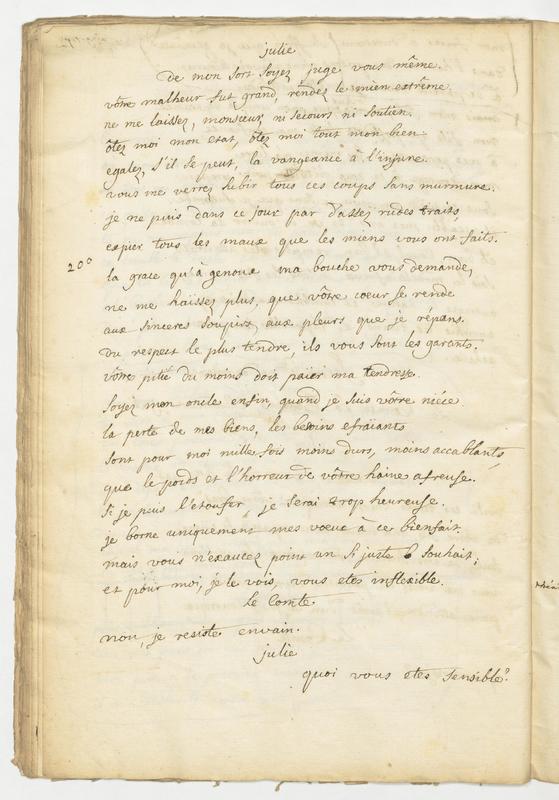 julie
De mon sort soyez juge vous même.
vôtre malheur fut grand, rendez le mien extrême
ne me laissez, monsieur, ni secours ni soutien.
ôtez moi mon etat, ôtez moi tout mon bien
egalez, s'il se peut, la vangeance à l'injure.
vous me verrez subir tous ces coups sans murmure.
je ne puis dans ce jour par d'assez rudes traits,
expier tous les maux que les miens vous ont faits.
200
la grace qu'à genoux ma bouche vous demande,
ne me haïssez plus, que vôtre coeur se rende
aux sinceres soupirs, aux pleurs que je répans.
du respect le plus tendre, ils vous sont les garants.
vôtre pitié du moins doit paier ma tendresse.
soyez mon oncle enfin, quand je suis vôtre niéce
la perte de mes biens, les besoins efraïants
sont pour moi mille fois moins durs, moins accablants,
que le poids et l'horreur de vôtre haine afreuse.
si je puis l'étoufer, je serai trop heureuse.
je borne uniquement mes voeux à ce bienfait.
mais vous n'exaucez point un si juste souhait;
et pour moi, je le vois, vous etes inflexible.
le Comte
non, je resiste envain.
julie
quoi vous etes sensible?